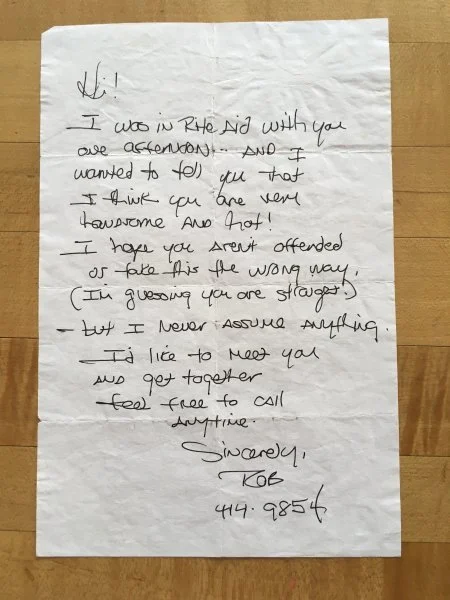 Hi!
I was in Rite Aid with you
one afternoon... AND I
wanted to tell you that
I think you are very
handsome AND hot!
I hope you aren't offended
or take this the wrong way.
(I'm guessing you are straight?)
- but I never assume anything.
I'd like to meet you
AND get together
feel free to call
anytime.
Sincerely,
ROB
414·9854